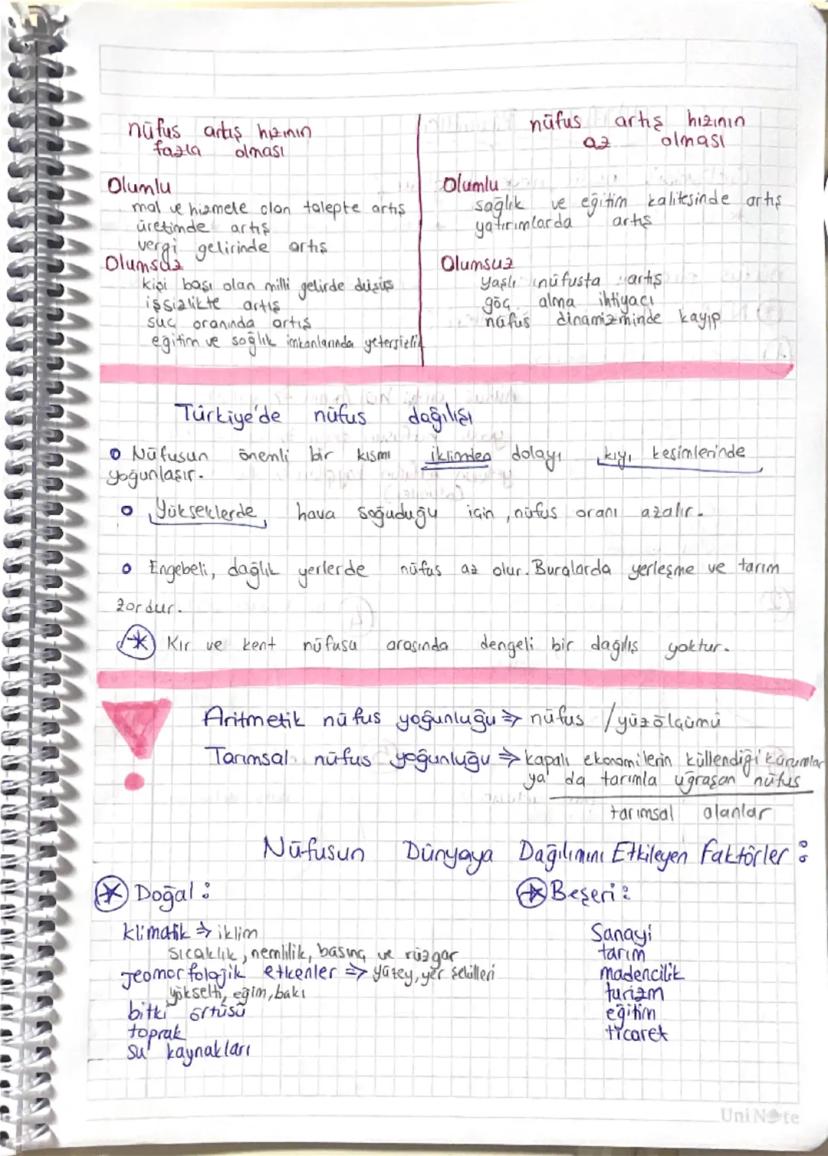 nüfus artış hızının
fazla olması
Olumlu
mal ve hizmete olan talepte artış
üretimde artış
vergi gelirinde artış
Olumsuz
kişi başı olan milli gelirde düşüş
işsizlikte artış
suç oranında artış
eğitim ve sağlık imkanlarında yetersizli
nüfus artış hızının
az olması
Olumlu
sağlık ve eğitim kalitesinde artış
yatırımlarda artış
Olumsuz
yaşlı nüfusta artış
göç alma ihtiyacı
nüfus dinamizminde kayıp
Türkiye'de nüfus dağılışı
Nüfusun önemli bir kısmı iklimden dolayı kıyı kesimlerinde
yoğunlaşır.
Yükseklerde hava soğuduğu için, nüfus oranı azalır.
Engebeli, dağlık yerlerde nüfus az olur. Buralarda yerleşme ve tarım
zordur.
Kır ve kent nüfusu arasında dengeli bir dağılış yoktur.
Aritmetik nüfus yoğunluğu ⇒ nüfus / yüzölçümü
Tarımsal nüfus yoğunluğu ⇒ kapalı ekonomilerin
ya da tarımla uğraşan nüfus
tarımsal alanlar
Nüfusun Dünyaya Dağılımını Etkileyen Faktörler:
Doğal:
klimatik ⇒ iklim
sıcaklık, nemlilik, basınç ve rüzgar
jeomorfolojik etkenler ⇒ yüzey, yer şekilleri
yükselti, eğim, bakı
bitki örtüsü
toprak
su kaynakları
Beşeri:
Sanayi
tarım
madencilik
turizm
eğitim
ticaret
UniNote